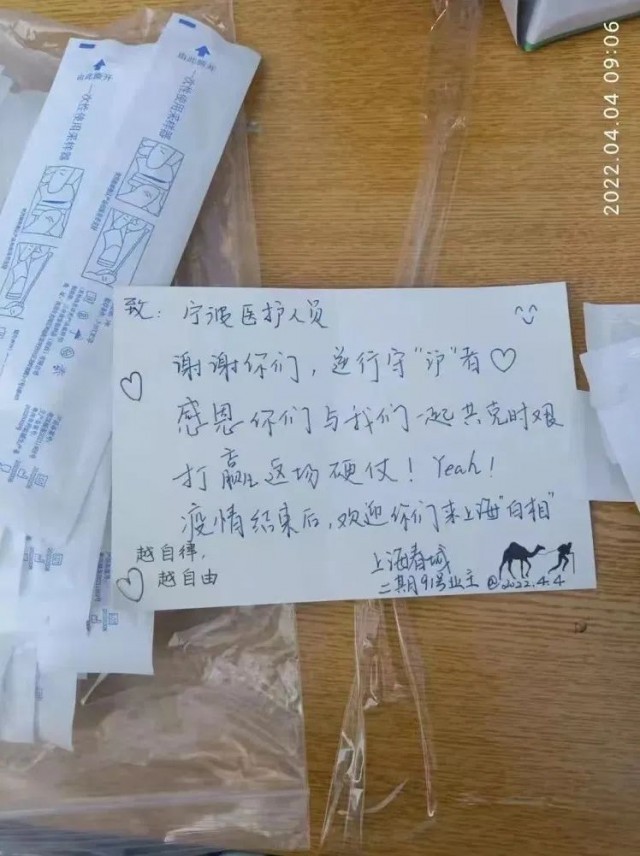 2022.04.04 09:06
一次性使用采样器
一次性使用采样器
致：宁波医护人员
谢谢你们，逆行守"沪"者♡
感恩你们与我们一起共克时艰
打赢这场硬仗！Yeah！
疫情结束后，欢迎你们来上海"白相"
越自律，
越自由
上海春城
二期91号业主 @2022.4.4